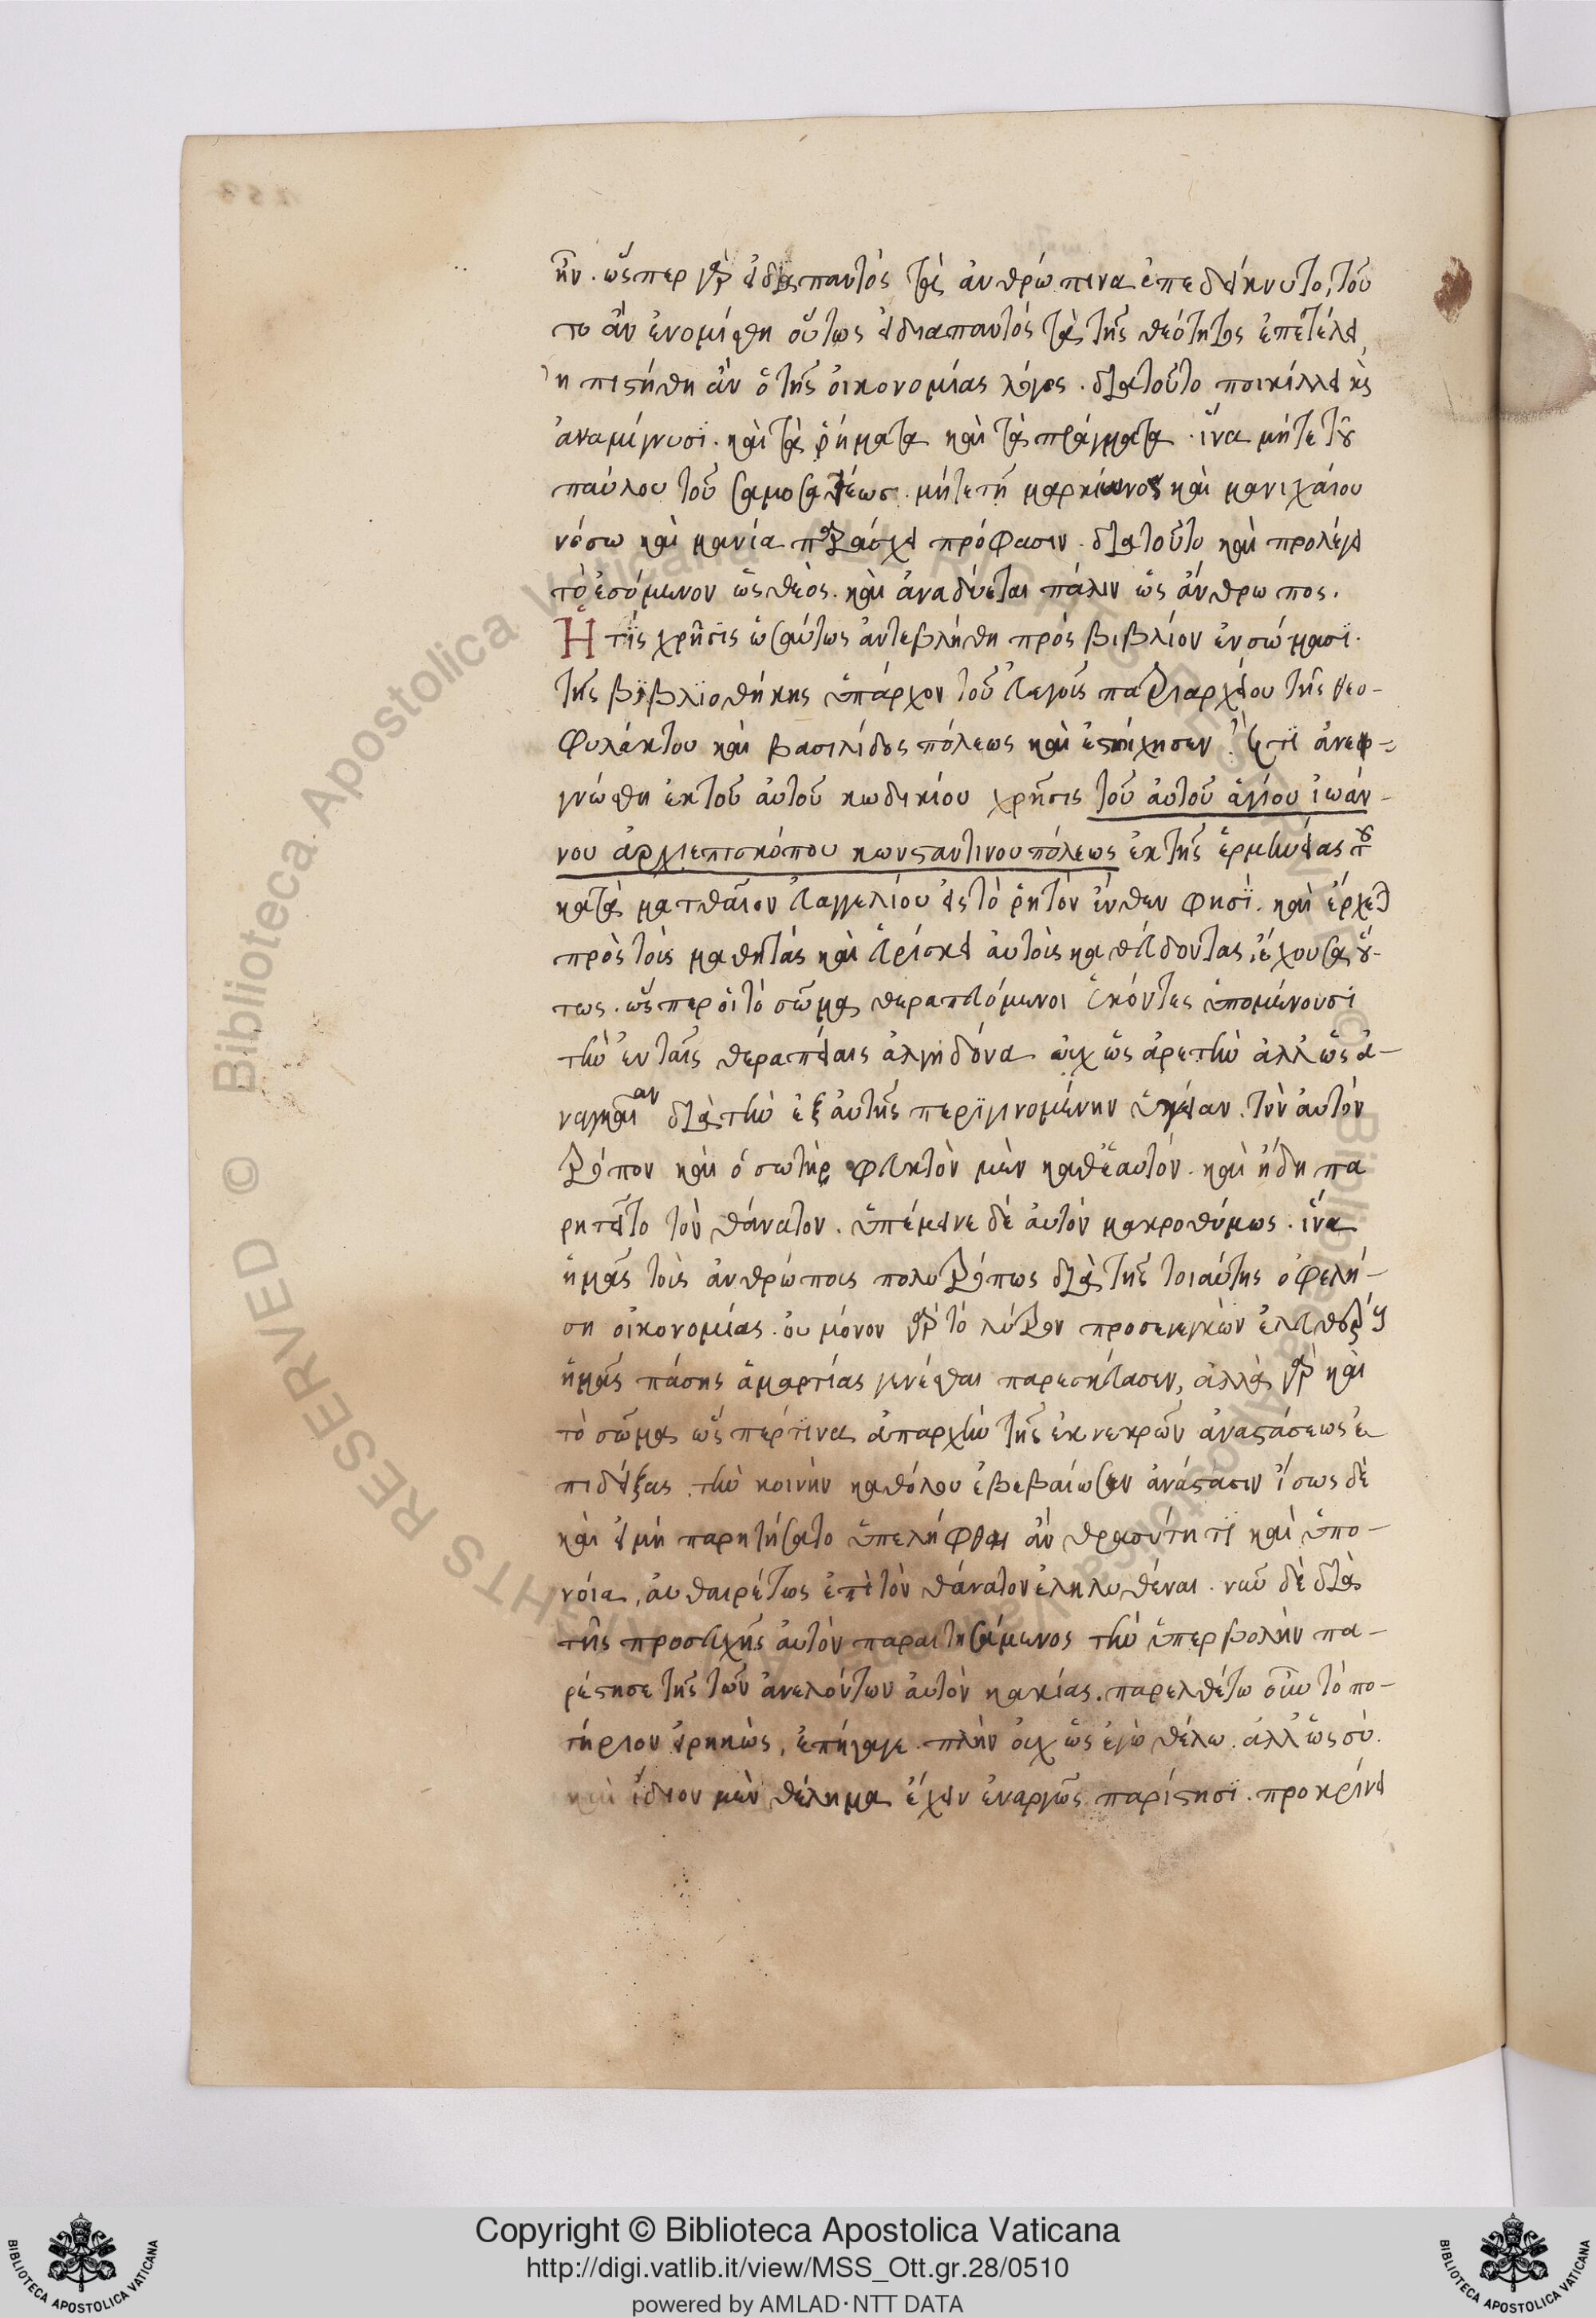 ἦν. ὥσπερ γὰρ εἰ διαπαντὸς τὰ ἀνθρώπινα ἐπεδείκνυτο, τοῦ
το ἂν ἐνομίσθη οὕτως εἰ διαπαντὸς τὰ τῆς θεότητος ἐπετέλει,
ἠπιστήθη ἂν ὁ τῆς οἰκονομίας λόγος. διατοῦτο ποικίλλει κὶ
ἀναμίγνυσϊ. καὶ τὰ ῥήματα καὶ τὰ πράγματα. ἵνα μήτε τοῦ
παύλου τοῦ σαμοσατέως. μήτε τῆ μαρκίωνος καὶ μανιχάιου
νόσω καὶ μανία παράσχει πρόφασιν. διατοῦτο καὶ προλέγει
τὸ ἐσόμενον ὡς θεὸς. καὶ ἀναδύεται πάλιν ὡς ἄνθρωπος.
Ἥ τϊς χρῆσϊς ὡσαύτως ἀντεβλήθη πρὸς βιβλίον ἐν σώμασϊ.
τῆς βϊβλϊοθήκης ὑπάρχον τοῦ εὐαγοῦς πατριαρχείου τῆς θεο-
φυλάκτου καὶ βασιλίδος πόλεως καὶ ἐστοίχησεν. ἔτϊ ἀνε-
γνώσθη ἐκ τοῦ ἀυτοῦ κωδικίου χρῆσις τοῦ ἀυτοῦ ἁγίου ἰωάν-
νου ἀρχιεπισκόπου κωνσταντινουπόλεως ἐκ τῆς ἑρμηνείας τοῦ
κατὰ ματθαῖον εὐαγγελίου εἰς τὸ ῥητὸν ἔνθεν φησϊ. καὶ ἔρχεται
πρὸς τοὺς μαθητὰς καὶ εὑρίσκει ἀυτοὺς καθεύδοντας, ἔχουσα οὕ-
τως. ὥσπερ ὁι τὸ σῶμα θεραπευόμενοι ἑκόντες ὑπομένουσϊ
τὴν ἐν ταῖς θεραπείαις ἀλγηδόνα ὀυχ ὡς ἀρετὴν ἀλλ' ὡς ἀ-
ναγκαίαν διὰ τὴν ἐξ ἀυτῆς περϊγινομένην ὑγείαν. τὸν ἀυτὸν
τρόπον καὶ ὁ σωτὴρ φευκτὸν μὲν καθ' ἑαυτόν. καὶ ἤδη πα
ρητεῖτο τὸν θάνατον. ὑπέμεινε δὲ ἀυτὸν μακροθύμως. ἵνα
ἡμᾶς τοὺς ἀνθρώπους πολυτρόπως διὰ τῆς τοιαύτης ὀφελή-
ση οἰκονομίας. ὀυ μόνον γὰρ τὸ λύτρον προσενεγκὼν ἐλευθέρους
ἡμᾶς πάσης ἁμαρτίας γενέσθαι παρεσκεύασεν, ἀλλὰ γὰρ καὶ
τὸ σῶμα ὥσπέρ τινα ἀπαρχὴν τῆς ἐκ νεκρῶν ἀναστάσεως ἐ
πιδείξας. τὴν κοινὴν καθόλου ἐβεβαίωσεν ἀνάστασιν ἴσως δὲ
καὶ εἰ μὴ παρητήσατο ὑπελήφθη ἂν θρασύτητϊ καὶ ὑπο-
νόια, ἀυθαιρέτως ἐπὶ τὸν θάνατον ἐληλυθέναι. νῦν δὲ διὰ
τῆς προσευχῆς ἀυτὸν παραιτησάμενος τὴν ὑπερβολὴν πα-
ρέστησε τῆς τῶν ἀνελόντων ἀυτὸν κακίας. παρελθέτω οὖν τὸ πο-
τήριον εἰρηκὼς, ἐπήγαγε. πλὴν ὀυχ ὡς ἐγὼ θέλω. ἀλλ' ὡς σὺ.
καὶ ἴδιον μὲν θέλημα ἔχειν ἐναργῶς παρίστησϊ. προκρίνει
Copyright © Biblioteca Apostolica Vaticana
http://digi.vatlib.it/view/MSS_Ott.gr.28/0510
powered by AMLAD·NTT DATA